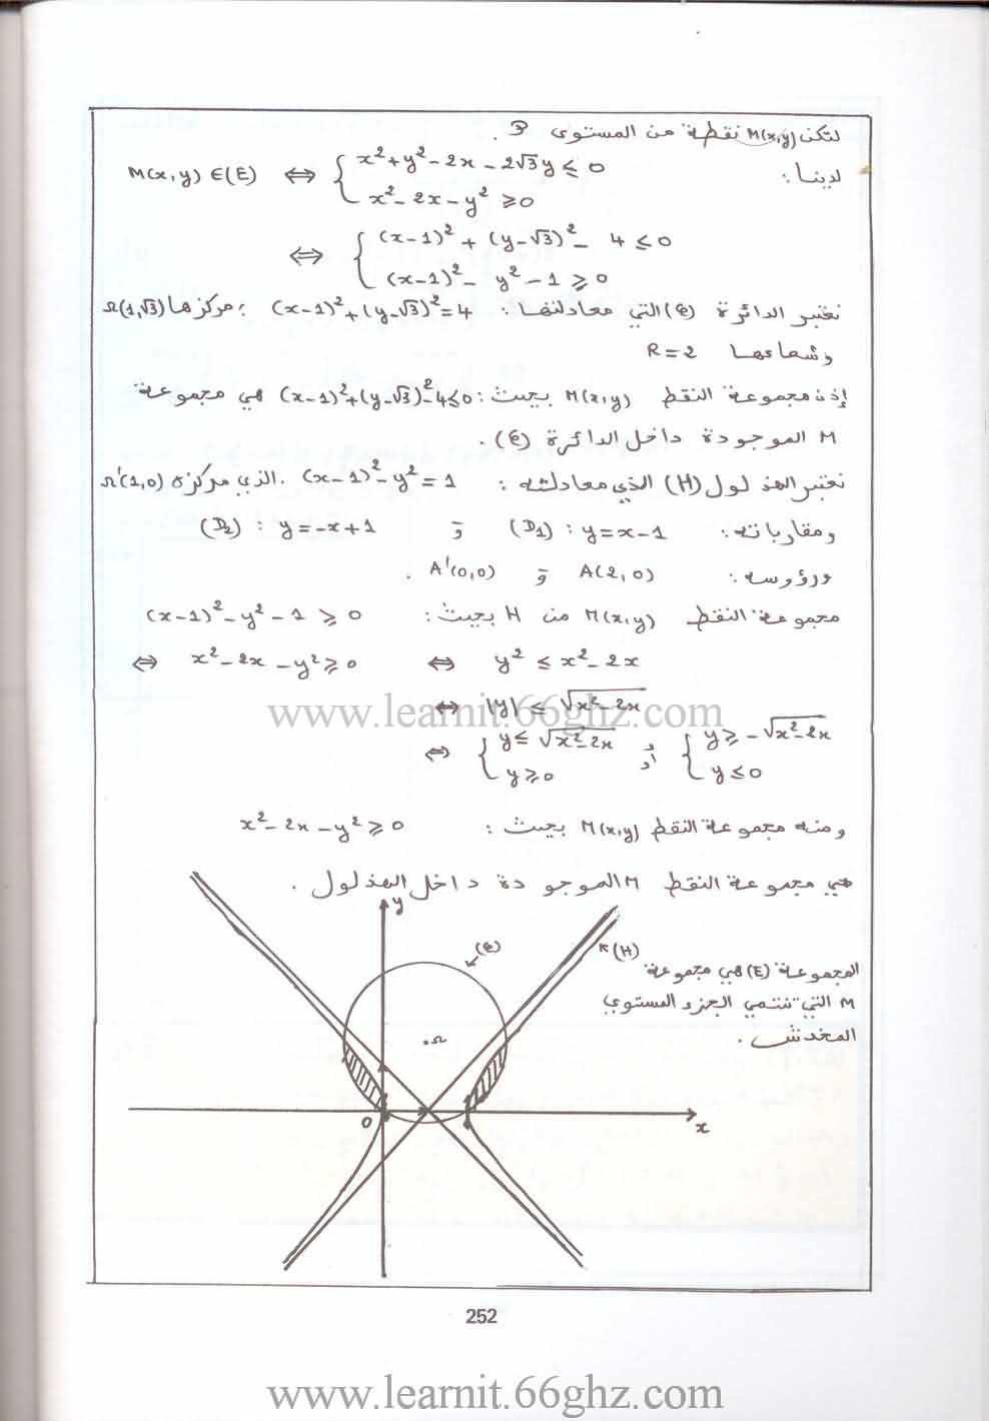 لتكن M(x,y) نقطة من المستوى P.
لدينا: M(x,y) ∈(E) ⇔ { x²+y²-2x-2√3y ≤ 0
x²-2x-y² ≥ 0
⇔ { (x-1)² + (y-√3)² - 4 ≤ 0
(x-1)² - y² - 1 ≥ 0
نعتبر الدائرة (C) التي معادلتها: (x-1)²+(y-√3)²=4 ; مركزها Ω(1,√3)
وشعاعها R=2
إذن مجموعة النقط M(x,y) بحيث: (x-1)²+(y-√3)²-4≤0 هي مجموعة
M الموجودة داخل الدائرة (C).
نعتبر الهذلول (H) الذي معادلته: (x-1)²-y²=1 . الذي مركزه Ω'(1,0)
ومقارباته: (D₁) : y=x-1 و (D₂) : y=-x+1
ورؤوسه: A(2,0) و A'(0,0) .
مجموعة النقط M(x,y) من H بحيث: (x-1)²-y²-1 ≥ 0
⇔ x²-2x-y² ≥ 0 ⇔ y² ≤ x²-2x
⇔ |y| ≤ √x²-2x
⇔ { y ≤ √x²-2x أو { y ≥ -√x²-2x
y ≥ 0 y ≤ 0
ومنه مجموعة النقط M(x,y) بحيث: x²-2x-y² ≥ 0
هي مجموعة النقط M الموجودة داخل الهذلول.
y
(C)
(H)
المجموعة (E) هي مجموعة
M التي تنتمي الجزء المستوي
المخدش.
.Ω
O
x
252
www.learnit.66ghz.com
www.learnit.66ghz.com